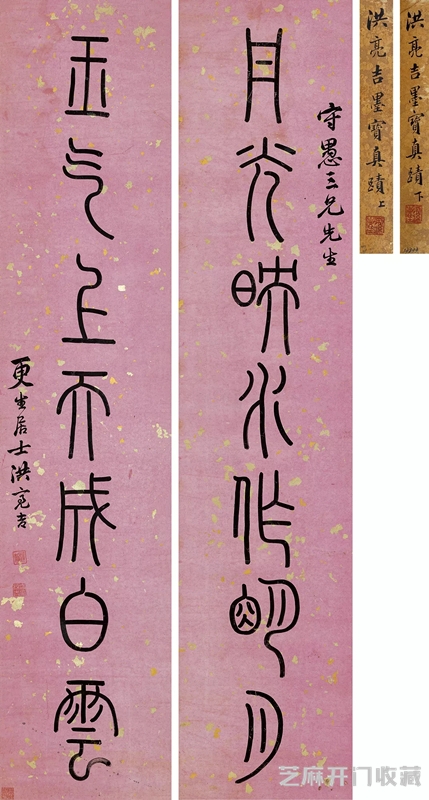 洪亮吉墨寶真蹟下
洪亮吉墨寶真蹟上
守愚三兄先生
丹光映水作朙月
玉气上天成白雲
更生居士洪亮吉
芝麻开门收藏